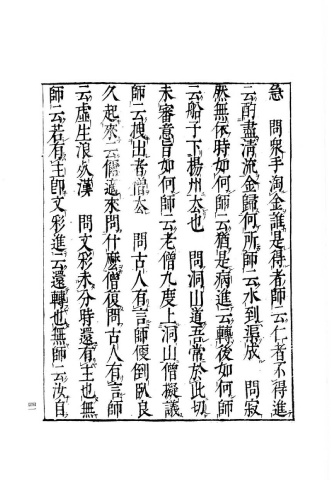 急　問衆手淘金誰是得者師云仁者不得進
云酌盡清流金歸何所師云水到渠成　問寂
然無依時如何師云猶是病進云轉後如何師
云船子下楊州去也　問洞山道吾常於此切
未審意旨如何師云老僧九度上洞山僧擬議
師云拽出者僧去　問古人有言師便倒臥良
久起來云僧適來問什麼僧復問古人有言師
云虛生浪死漢　問文彩未分時還有主也無
師云若有主即文彩進云還轉也無師云汝自
四一